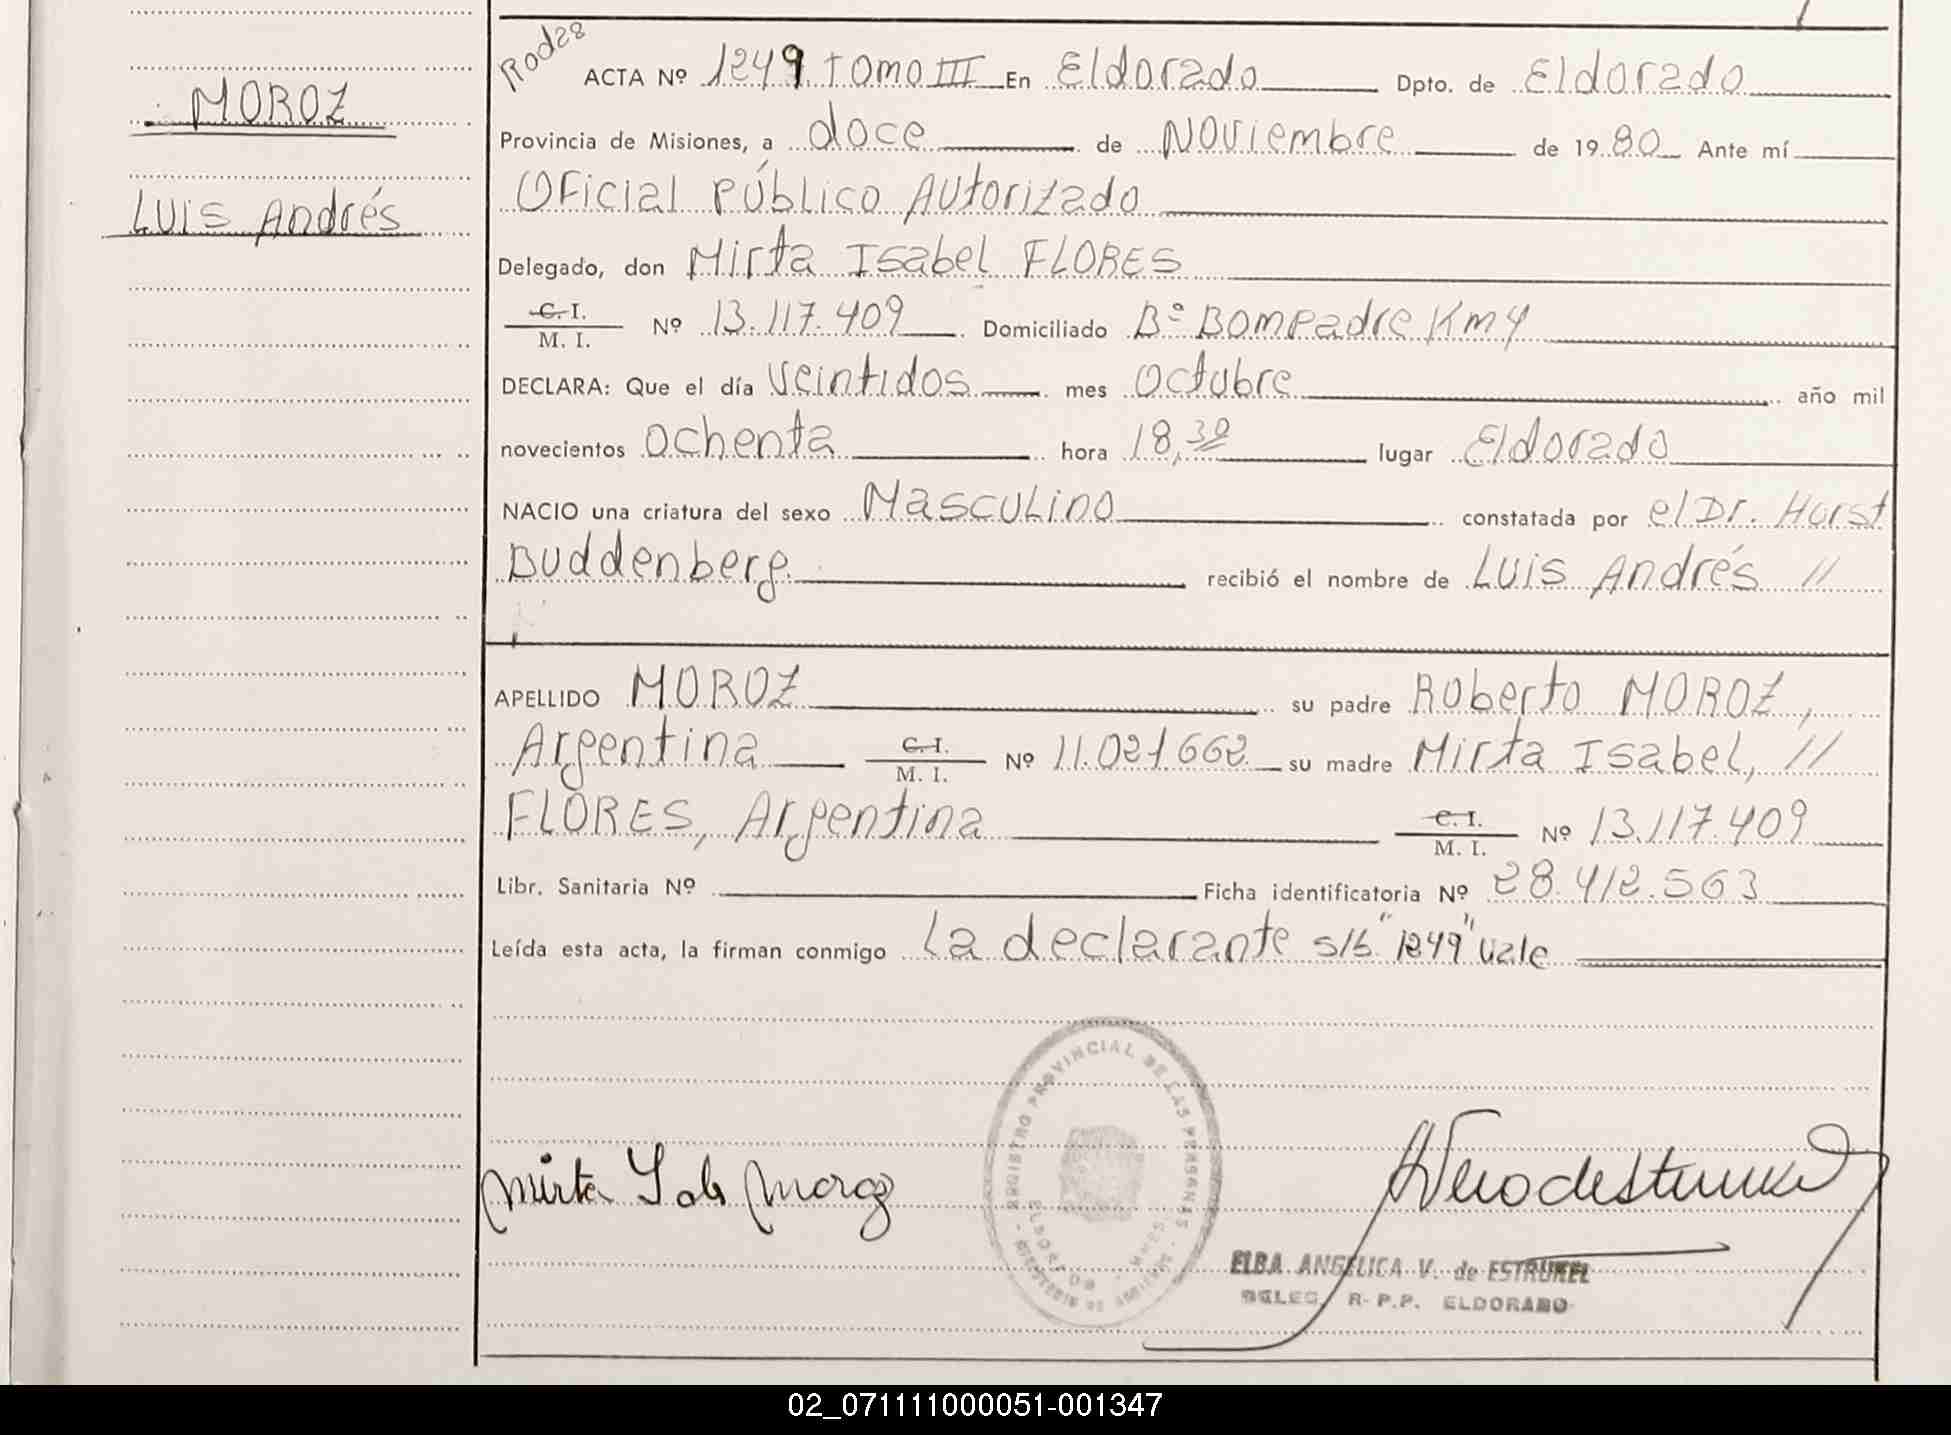 MOROZ
LUIS Andrés
Rod28
ACTA Nº 1249 tomo III En Eldorado Dpto. de Eldorado
Provincia de Misiones, a doce de Noviembre de 1980 Ante mí
Oficial Público Autorizado
Delegado, don Mirta Isabel FLORES
C. I.
M. I. Nº 13.117.409 Domiciliado Bº Bompadre Km 4
DECLARA: Que el día veintidos mes Octubre año mil
novecientos ochenta hora 18,30 lugar Eldorado
NACIO una criatura del sexo Masculino constatada por el Dr. Horst
Buddenberg recibió el nombre de Luis Andrés //
APELLIDO MOROZ su padre Roberto MOROZ,
Argentina C. I.
M. I. Nº 11.021.662 su madre Mirta Isabel, //
FLORES, Argentina C. I.
M. I. Nº 13.117.409
Libr. Sanitaria Nº Ficha identificatoria Nº 28.412.563
Leída esta acta, la firman conmigo la declarante s/b "1249" vale
REGISTRO PROVINCIAL DE LAS PERSONAS
ELDORADO - MNES.
MINISTERIO DE GOBIERNO
Mirta I de Moroz
ELBA ANGELICA V. de ESTRUKEL
DELEG. R. P.P. ELDORADO
02_071111000051-001347